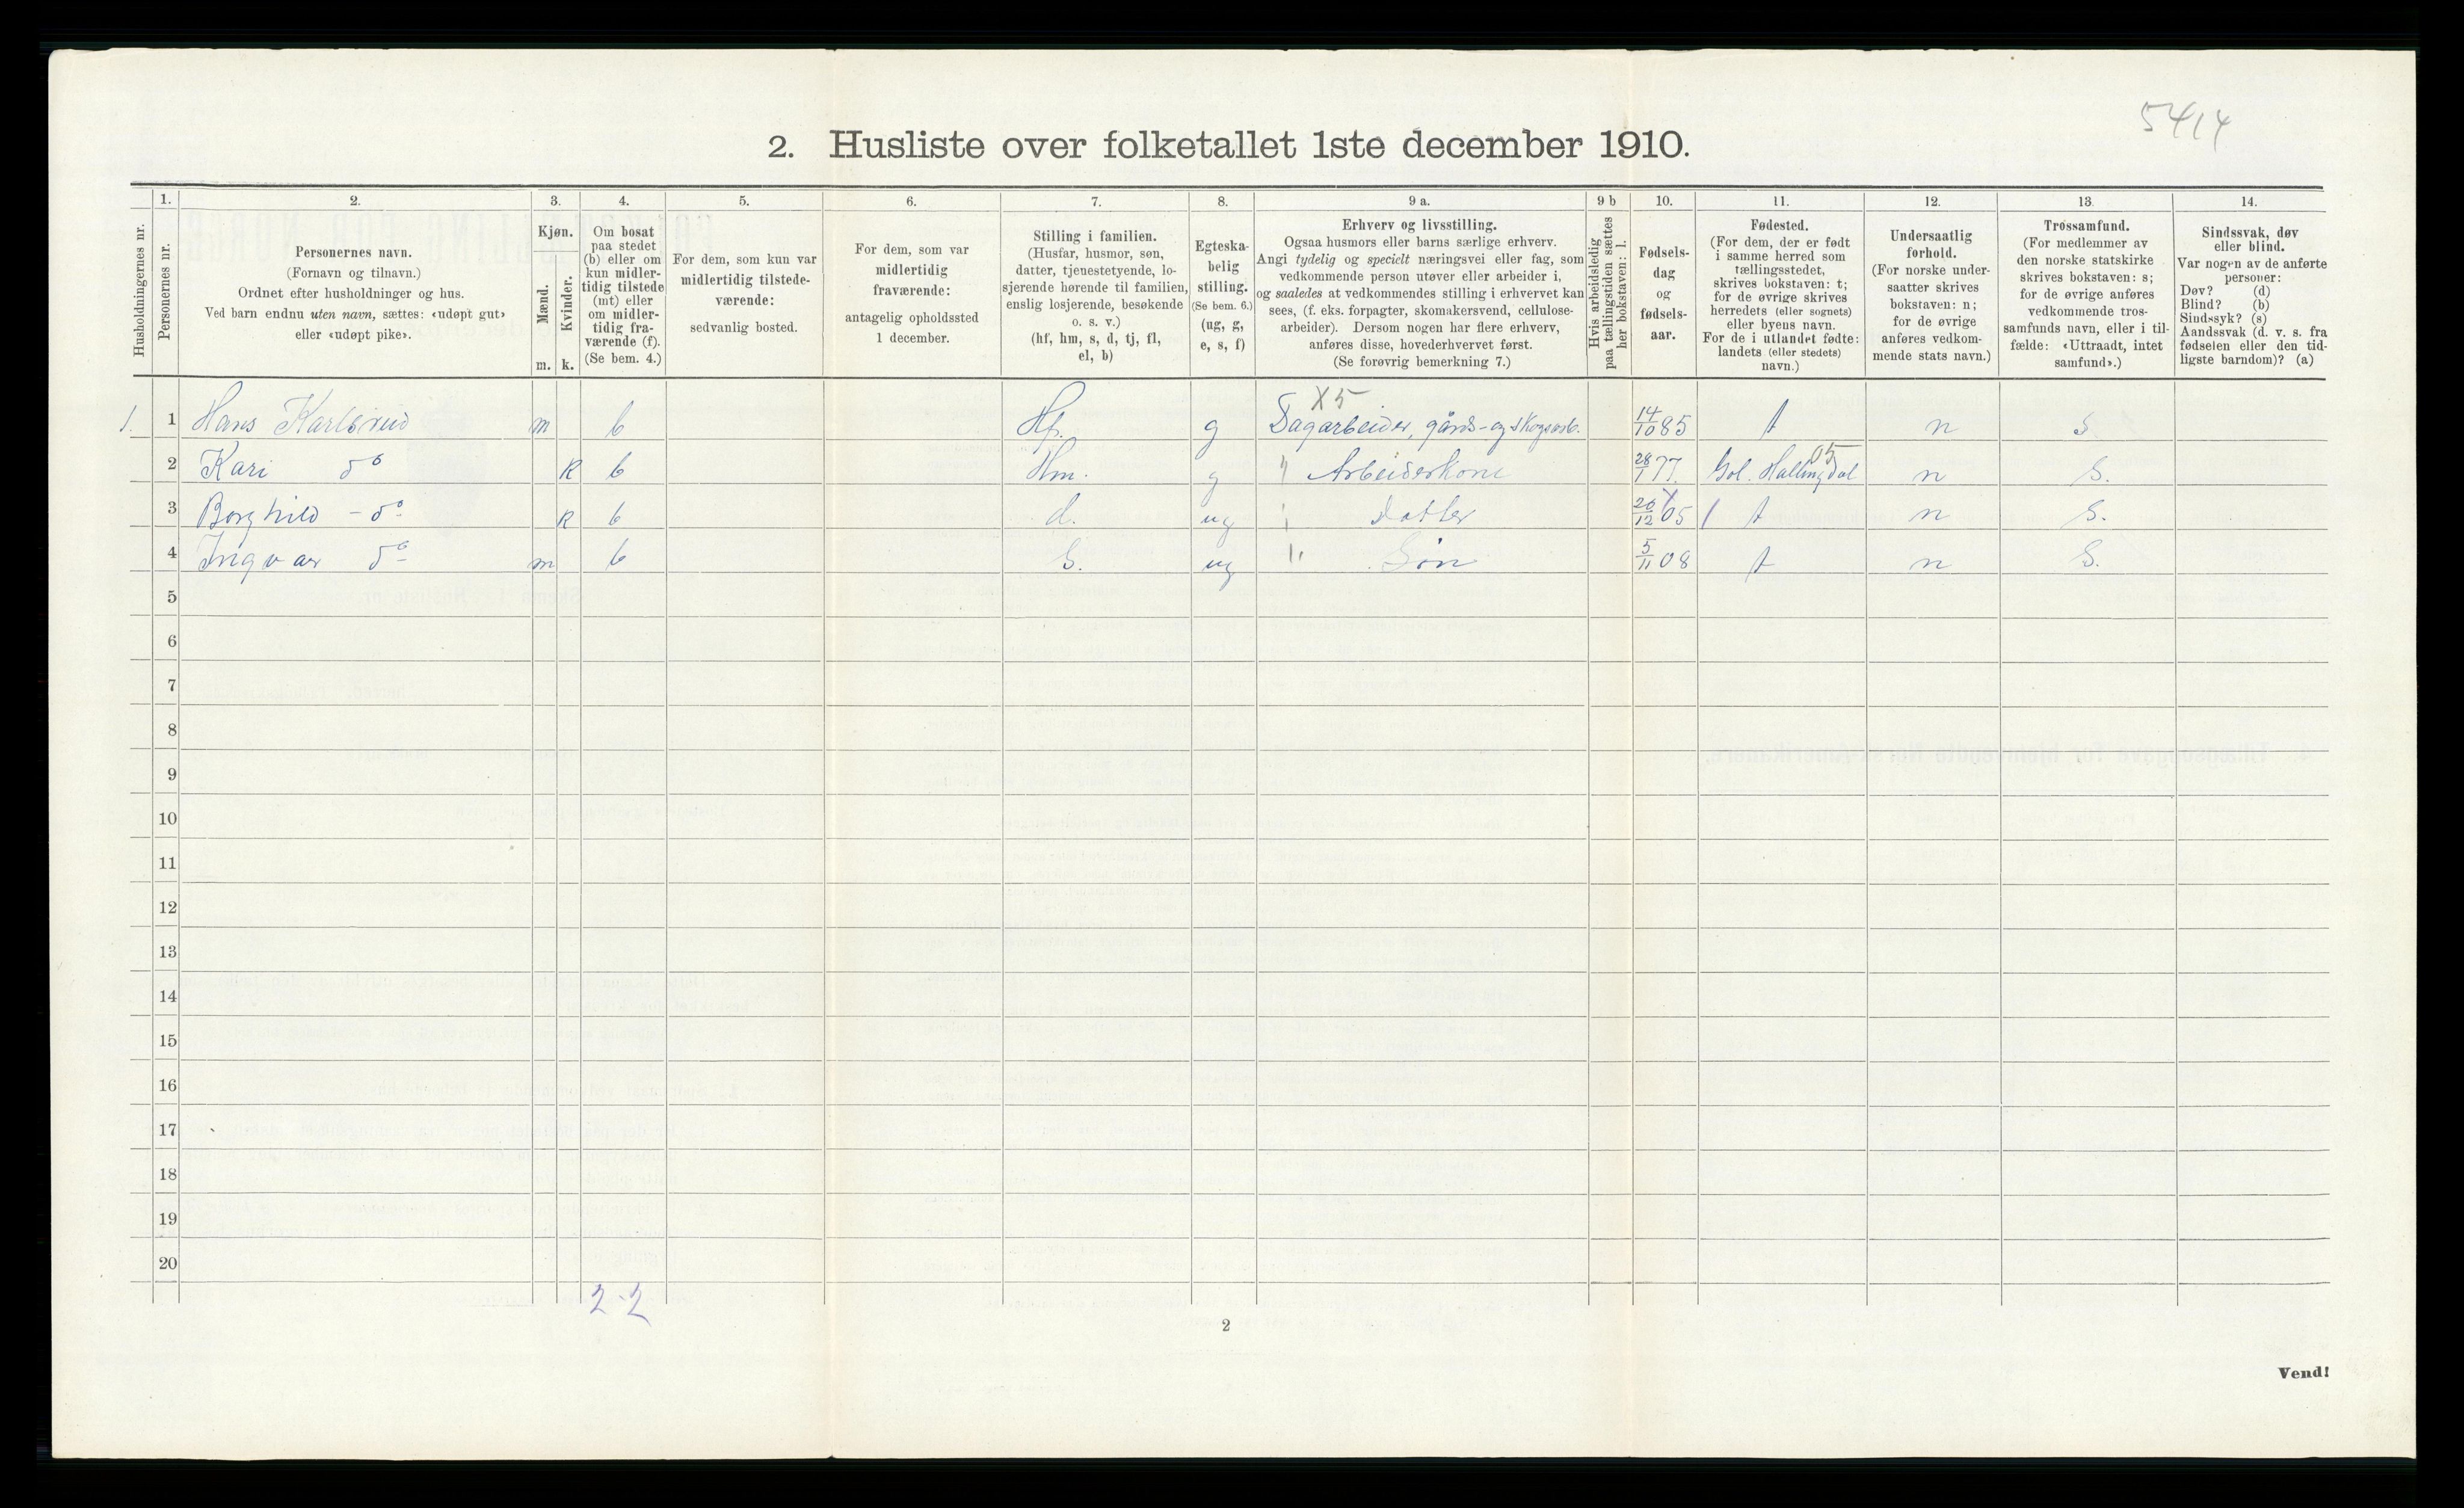 5414
2. Husliste over folketallet 1ste december 1910.
Husholdningernes nr.
1.
Personernes nr.
2.
Personernes navn.
(Fornavn og tilnavn.)
Ordnet efter husholdninger og hus.
Ved barn endnu uten navn, sættes: «udøpt gut»
eller «udøpt pike».
3.
Kjøn.
Mænd.
Kvinder.
m. k.
4.
Om bosat
paa stedet
(b) eller om
kun midler-
tidig tilstede
(mt) eller
om midler-
tidig fra-
værende (f).
(Se bem. 4.)
5.
For dem, som kun var
midlertidig tilstede-
værende:
sedvanlig bosted.
6.
For dem, som var
midlertidig
fraværende:
antagelig opholdssted
1 december.
7.
Stilling i familien.
(Husfar, husmor, søn,
datter, tjenestetyende, lo-
sjerende hørende til familien,
enslig losjerende, besøkende
o. s. v.)
(hf, hm, s, d, tj, fl,
el, b)
8.
Egteska-
belig
stilling.
(Se bem. 6.)
(ug, g,
e, s, f)
9 a.
Erhverv og livsstilling.
Ogsaa husmors eller barns særlige erhverv.
Angi tydelig og specielt næringsvei eller fag, som
vedkommende person utøver eller arbeider i,
og saaledes at vedkommendes stilling i erhvervet kan
sees, (f. eks. forpagter, skomakersvend, cellulose-
arbeider). Dersom nogen har flere erhverv,
anføres disse, hovederhvervet først.
(Se forøvrig bemerkning 7.)
9 b
Hvis arbeidsledig
paa tællingstiden sættes
her bokstaven: l.
10.
Fødsels-
dag
og
fødsels-
aar.
11.
Fødested.
(For dem, der er født
i samme herred som
tællingsstedet,
skrives bokstaven: t;
for de øvrige skrives
herredets (eller sognets)
eller byens navn.
For de i utlandet fødte:
landets (eller stedets)
navn.)
12.
Undersaatlig
forhold.
(For norske under-
saatter skrives
bokstaven: n;
for de øvrige
anføres vedkom-
mende stats navn.)
13.
Trossamfund.
(For medlemmer av
den norske statskirke
skrives bokstaven: s;
for de øvrige anføres
vedkommende tros-
samfunds navn, eller i til-
fælde: «Uttraadt, intet
samfund».)
14.
Sindssvak, døv
eller blind.
Var nogen av de anførte
personer:
Døv? (d)
Blind? (b)
Sindssyk? (s)
Aandssvak (d. v. s. fra
fødselen eller den tid-
ligste barndom)? (a)
X5
1. 1 Hans Karlsrud m b Hf. g Dagarbeider, gårds- og skogsarb. 14/10 85 t n S.
05
2 Kari do k b Hm. g " Arbeiderkone 28/1 77. Gol. Hallingdal n S.
3 Borghild - do k b d. ug " Datter 20/12 05 t n S.
4 Ingvar do m b S. ug " Søn 5/11 08 t n S.
5
6
7
8
9
10
11
12
13
14
15
16
17
18
19
20
2-2
2
Vend!